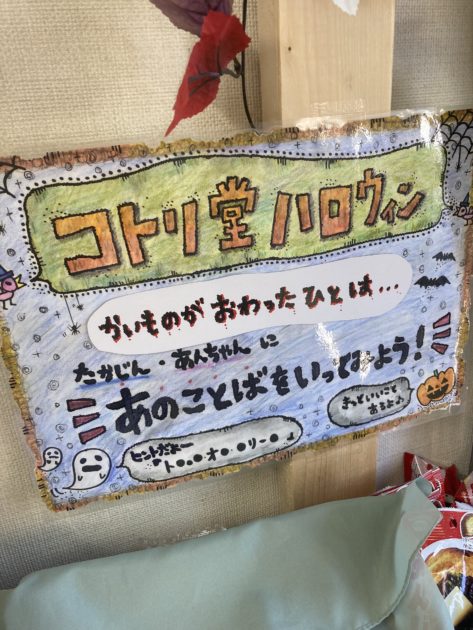 コトリ堂 ハロウィン
かいものが おわったひとは...
たかじん・あんちゃん に
あのことばをいってみよう!
きっといいこと
あるよ♪
ヒントだよー
"ト●●オ●●リー●"